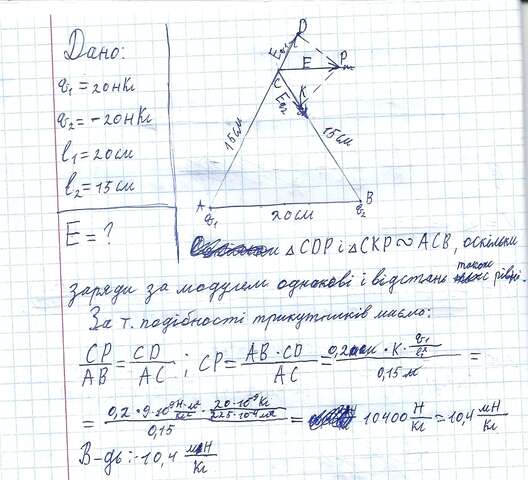 Дано:
q₁ = 20 нКл
q₂ = -20 нКл
l₁ = 20 см
l₂ = 15 см
E = ?
D
E_q₁
P
E
C
K
E_q₂
15 см
15 см
A
B
q₁
20 см
q₂
△CDP і △CKP ∾ ACB, оскільки
заряди за модулем однакові і відстань також рівні.
За т. подібності трикутників маємо:
CP/AB = CD/AC ; CP = AB · CD/AC = 0,2 · K · q₁/l²/0,15 м =
= 0,2 · 9 · 10⁹ Н·м²/Кл² · 20 · 10⁻⁹ Кл/225 · 10⁻⁴ м²/0,15 = 10400 Н/Кл = 10,4 мН/Кл
В-дь: 10,4 мН/Кл